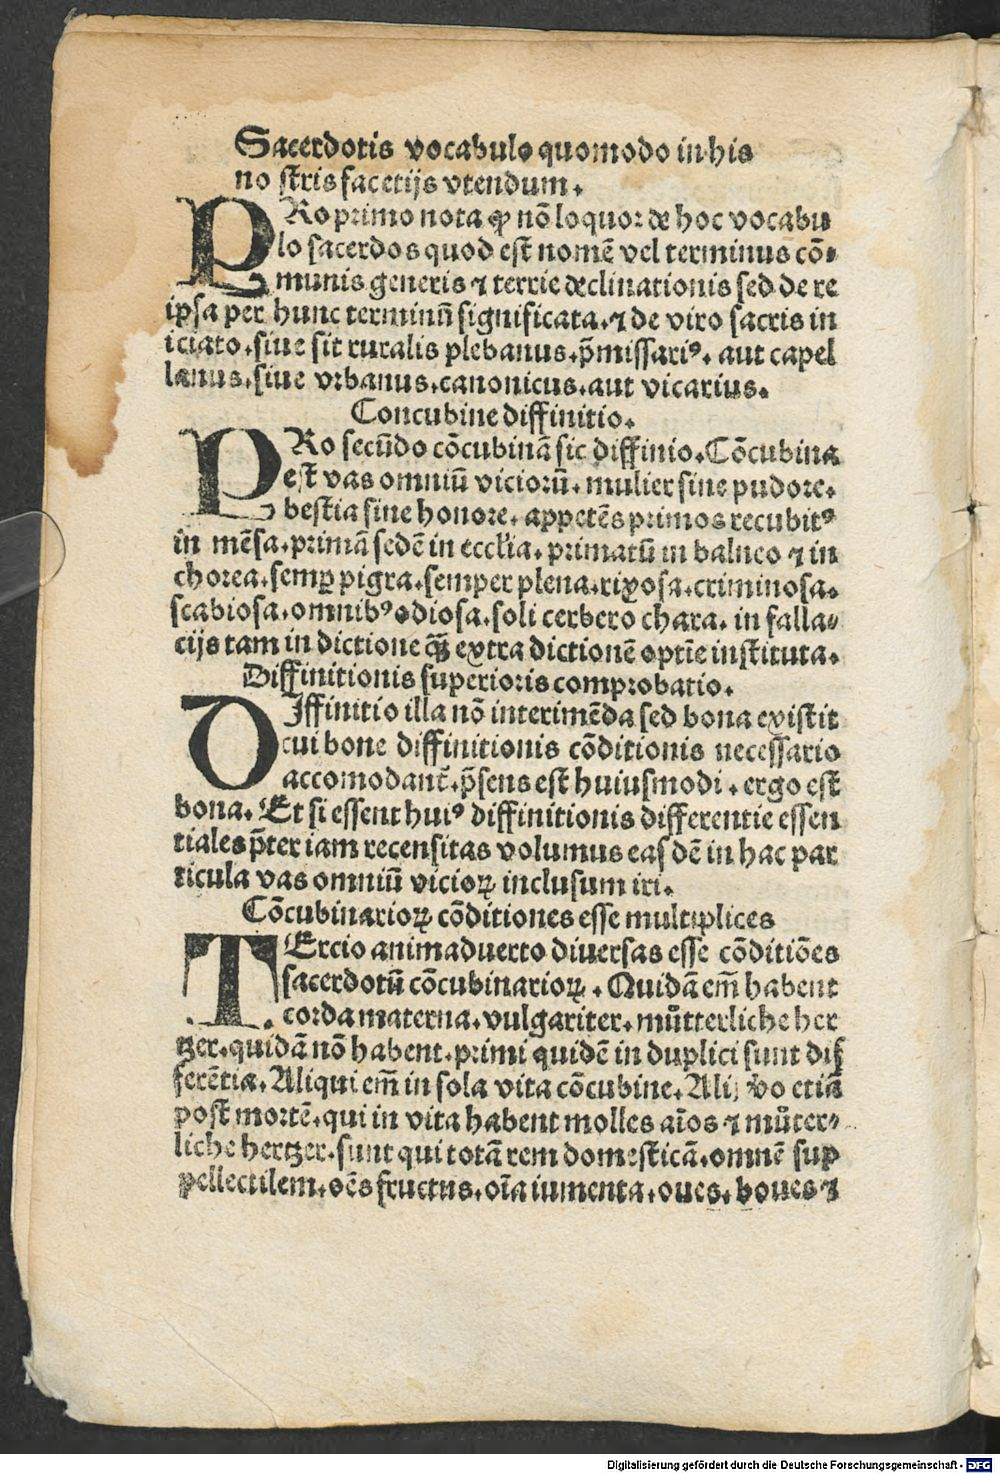 Sacerdotis vocabulo quomodo in his
no stris facetijs vtendum.
PRo primo nota ꝙ nō loquor de hoc vocabu
lo sacerdos quod est nomē vel terminus cō⸗
munis generis ⁊ terrie declinationis sed de re
ipsa per hunc terminū significata. ⁊ de viro sacris in
iciato. siue sit ruralis plebanus. p̄missariꝰ. aut capel
lanus. siue vrbanus. canonicus. aut vicarius.
Concubine diffinitio.
PRo secūdo cōcubinā sic diffinio. Cōcubina
est vas omniū viciorū. mulier sine pudore.
bestia sine honore. appetēs primos recubitꝰ
in mēsa. primā sedē in eccl̄ia. primatū in balneo ⁊ in
chorea. semꝑ pigra. semper plena. rixosa. criminosa.
scabiosa. omnibꝰ odiosa. soli cerbero chara. in falla⸗
cijs tam in dictione ꝗ̄ extra dictionē optīe instituta.
Diffinitionis superioris comprobatio.
DIffinitio illa nō interimēda sed bona existit
cui bone diffinitionis cōditionis necessario
accomodant̄. p̄sens est huiusmodi. ergo est
bona. Et si essent huiꝰ diffinitionis differentie essen
tiales p̄ter iam recensitas volumus eas dē in hac par
ticula vas omniū vicioꝝ inclusum iri.
Cōcubinarioꝝ cōditiones esse multiplices
TErcio animaduerto diuersas esse cōditiōes
sacerdotū cōcubinarioꝝ. Quidā em̄ habent
corda materna. vulgariter. můtterliche her
tzer. quidā nō habent. primi quidē in duplici sunt dif
ferētia. Aliqui em̄ in sola vita cōcubine. Alij v̄o etiā
post mortē. qui in vita habent molles aīos ⁊ můter⸗
liche hertzer. sunt qui totā rem domesticā. omnē sup
pellectilem. oēs fructus. oīa iumenta. oues. boues ⁊
Digitalisierung gefördert durch die Deutsche Forschungsgemeinschaft - DFG